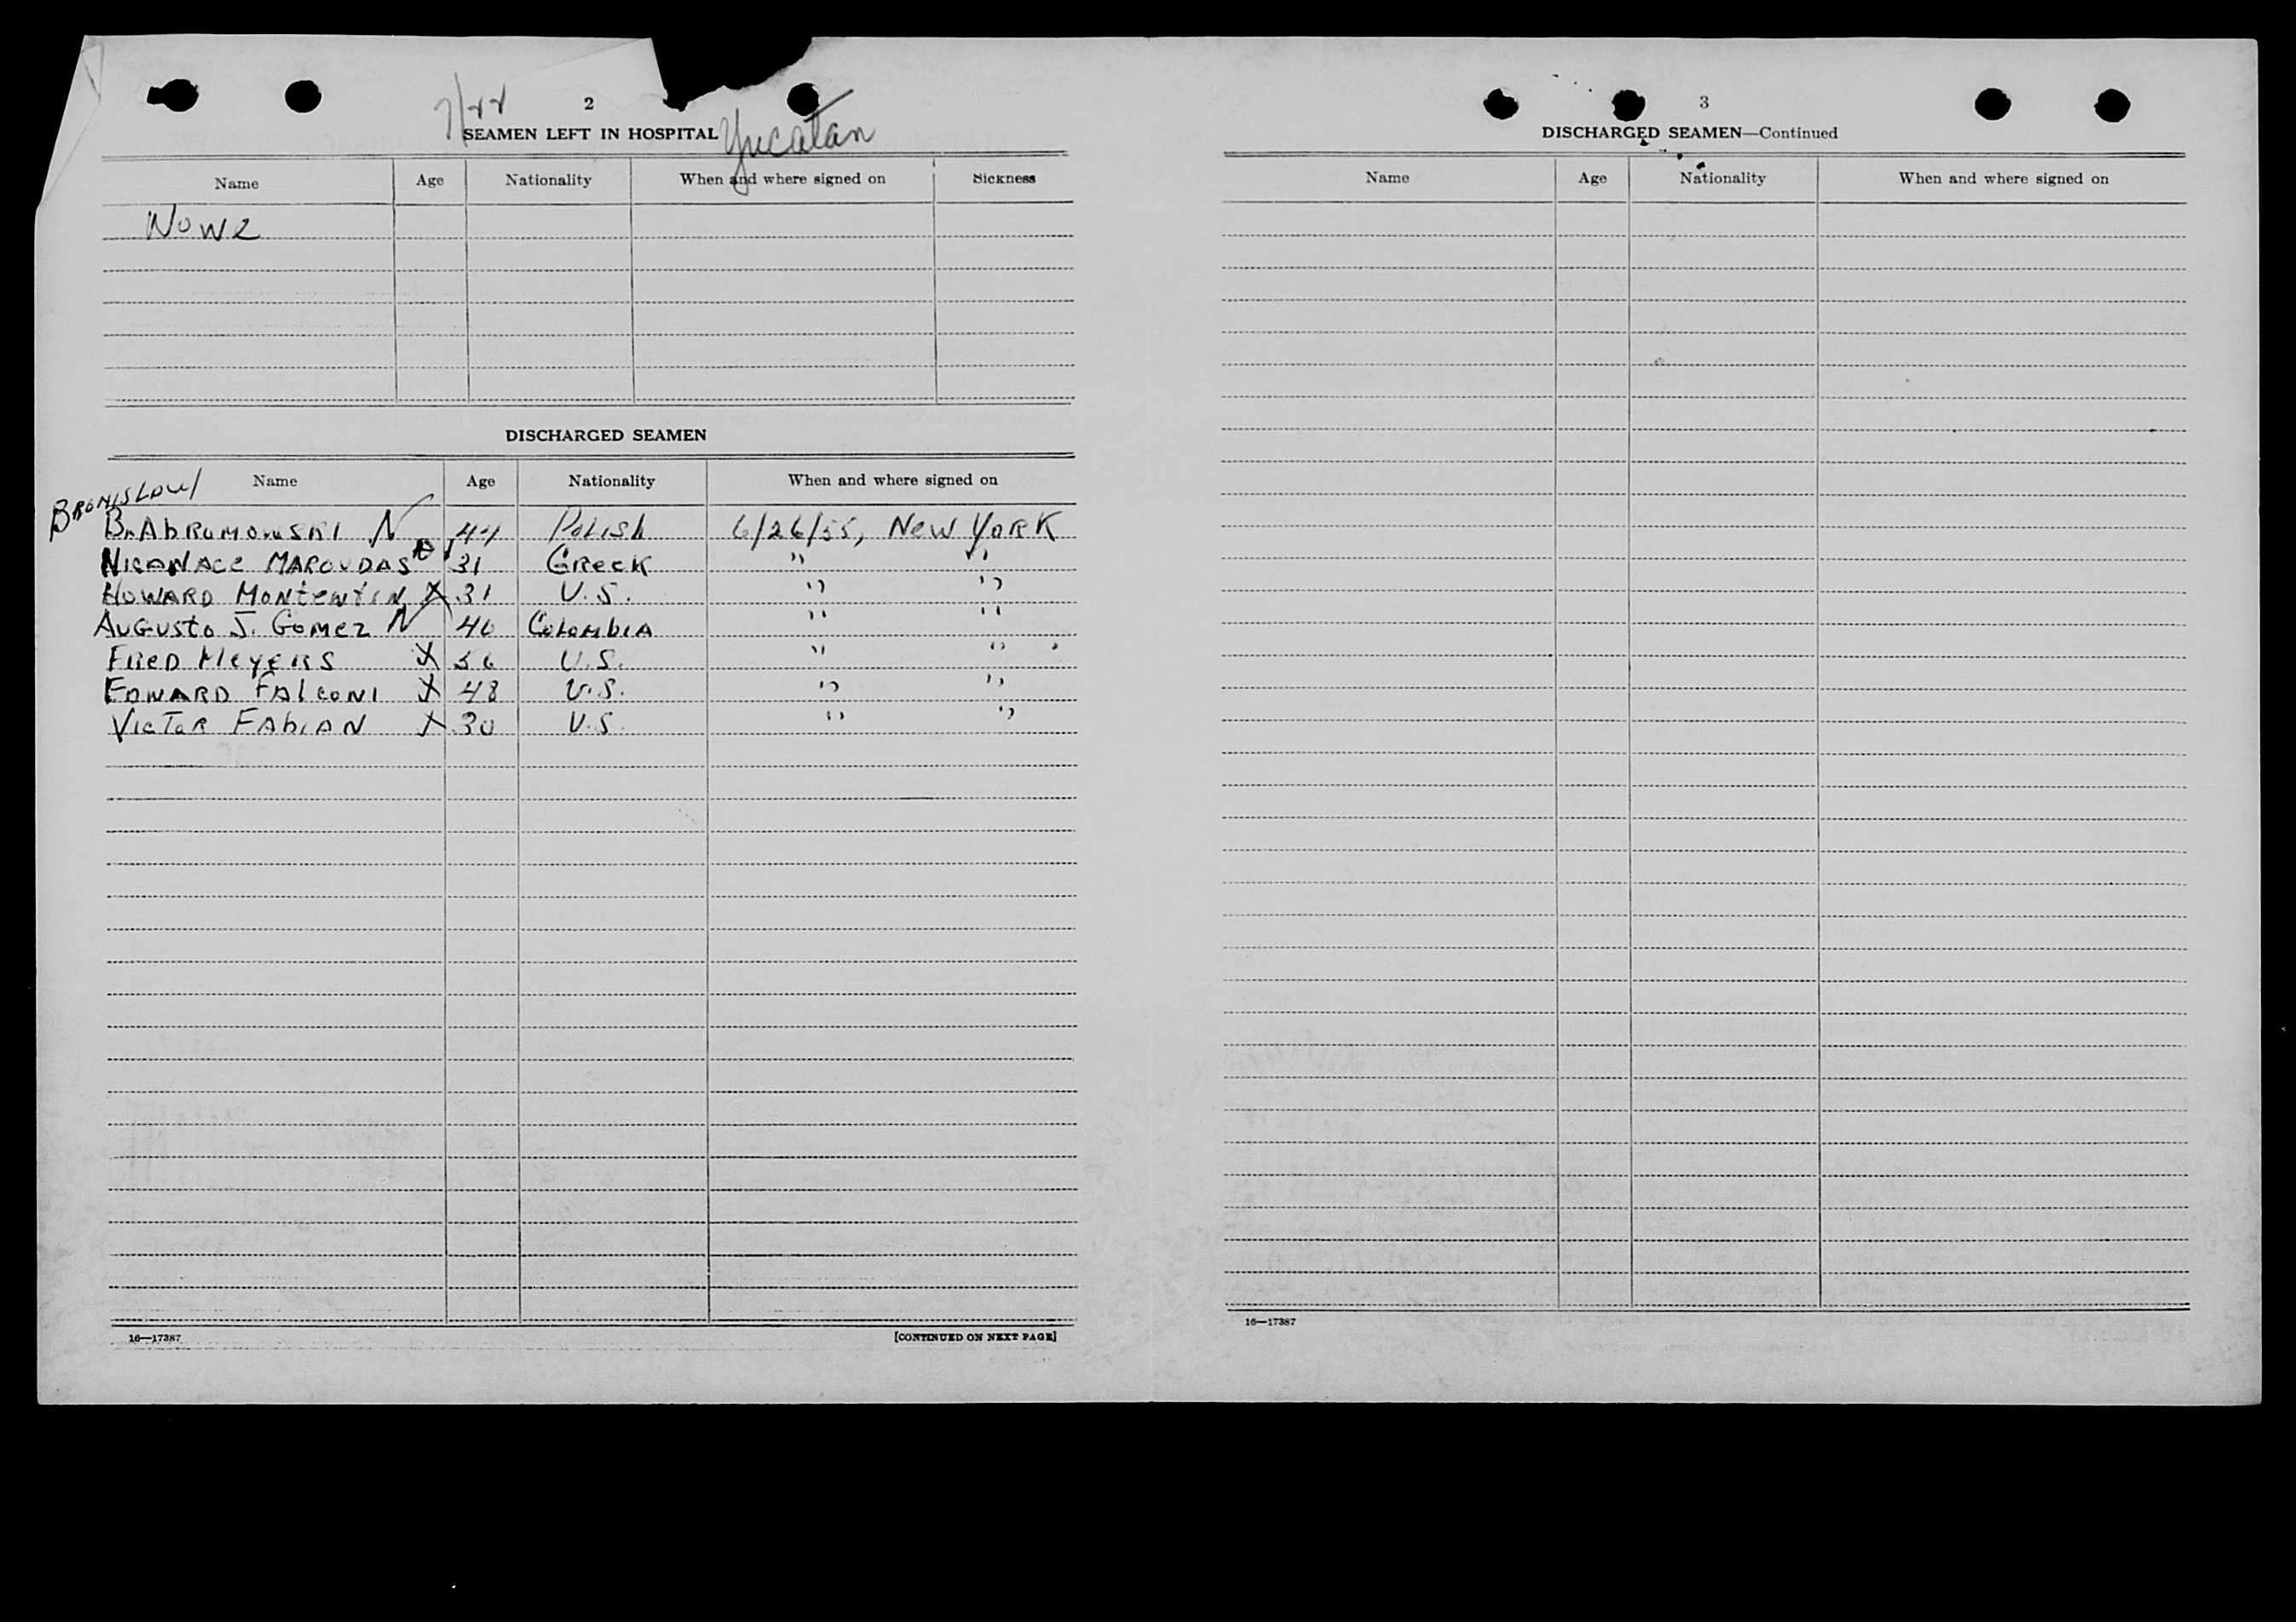 7/22
2
SEAMEN LEFT IN HOSPITAL Yucatan
Name Age Nationality When and where signed on Sickness
None
DISCHARGED SEAMEN
Name Age Nationality When and where signed on
BRONISLAW
B. AbRUMOWSKI N 44 POLISh 6/26/55, NEW YORK
MAROUDAS 31 GReeK " "
HOWARD X 31 U.S. " "
AUGUSTO J. GOMEZ N 40 COLOMbIA " "
FRED MEYERS X 56 U.S. " "
EDWARD FALCONI X 48 U.S. " "
VICTOR FAbIAN X 30 U.S. " "
16—17387 [CONTINUED ON NEXT PAGE]
3
DISCHARGED SEAMEN—Continued
Name Age Nationality When and where signed on
16—17387